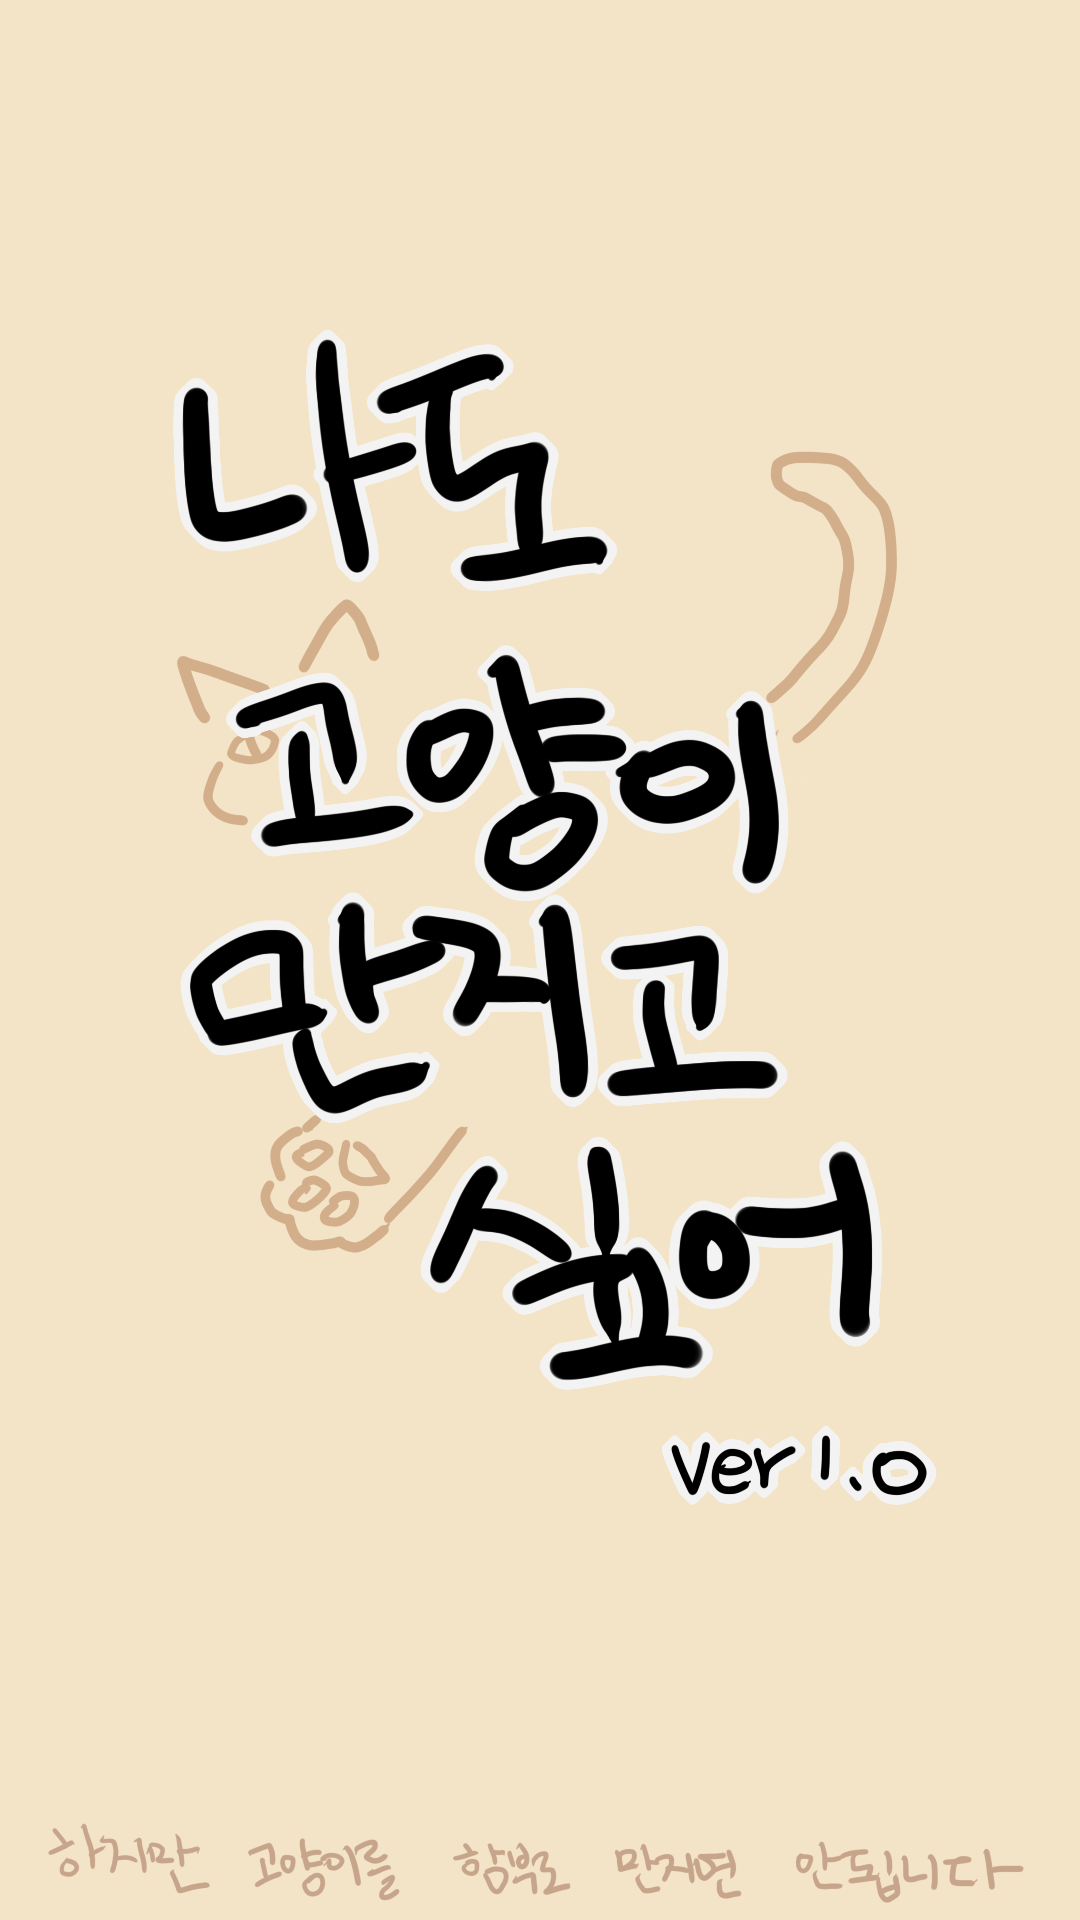 나도
고양이
만지고
싶어
ver 1.0
하지만 고양이를 함부로 만지면 안됩니다